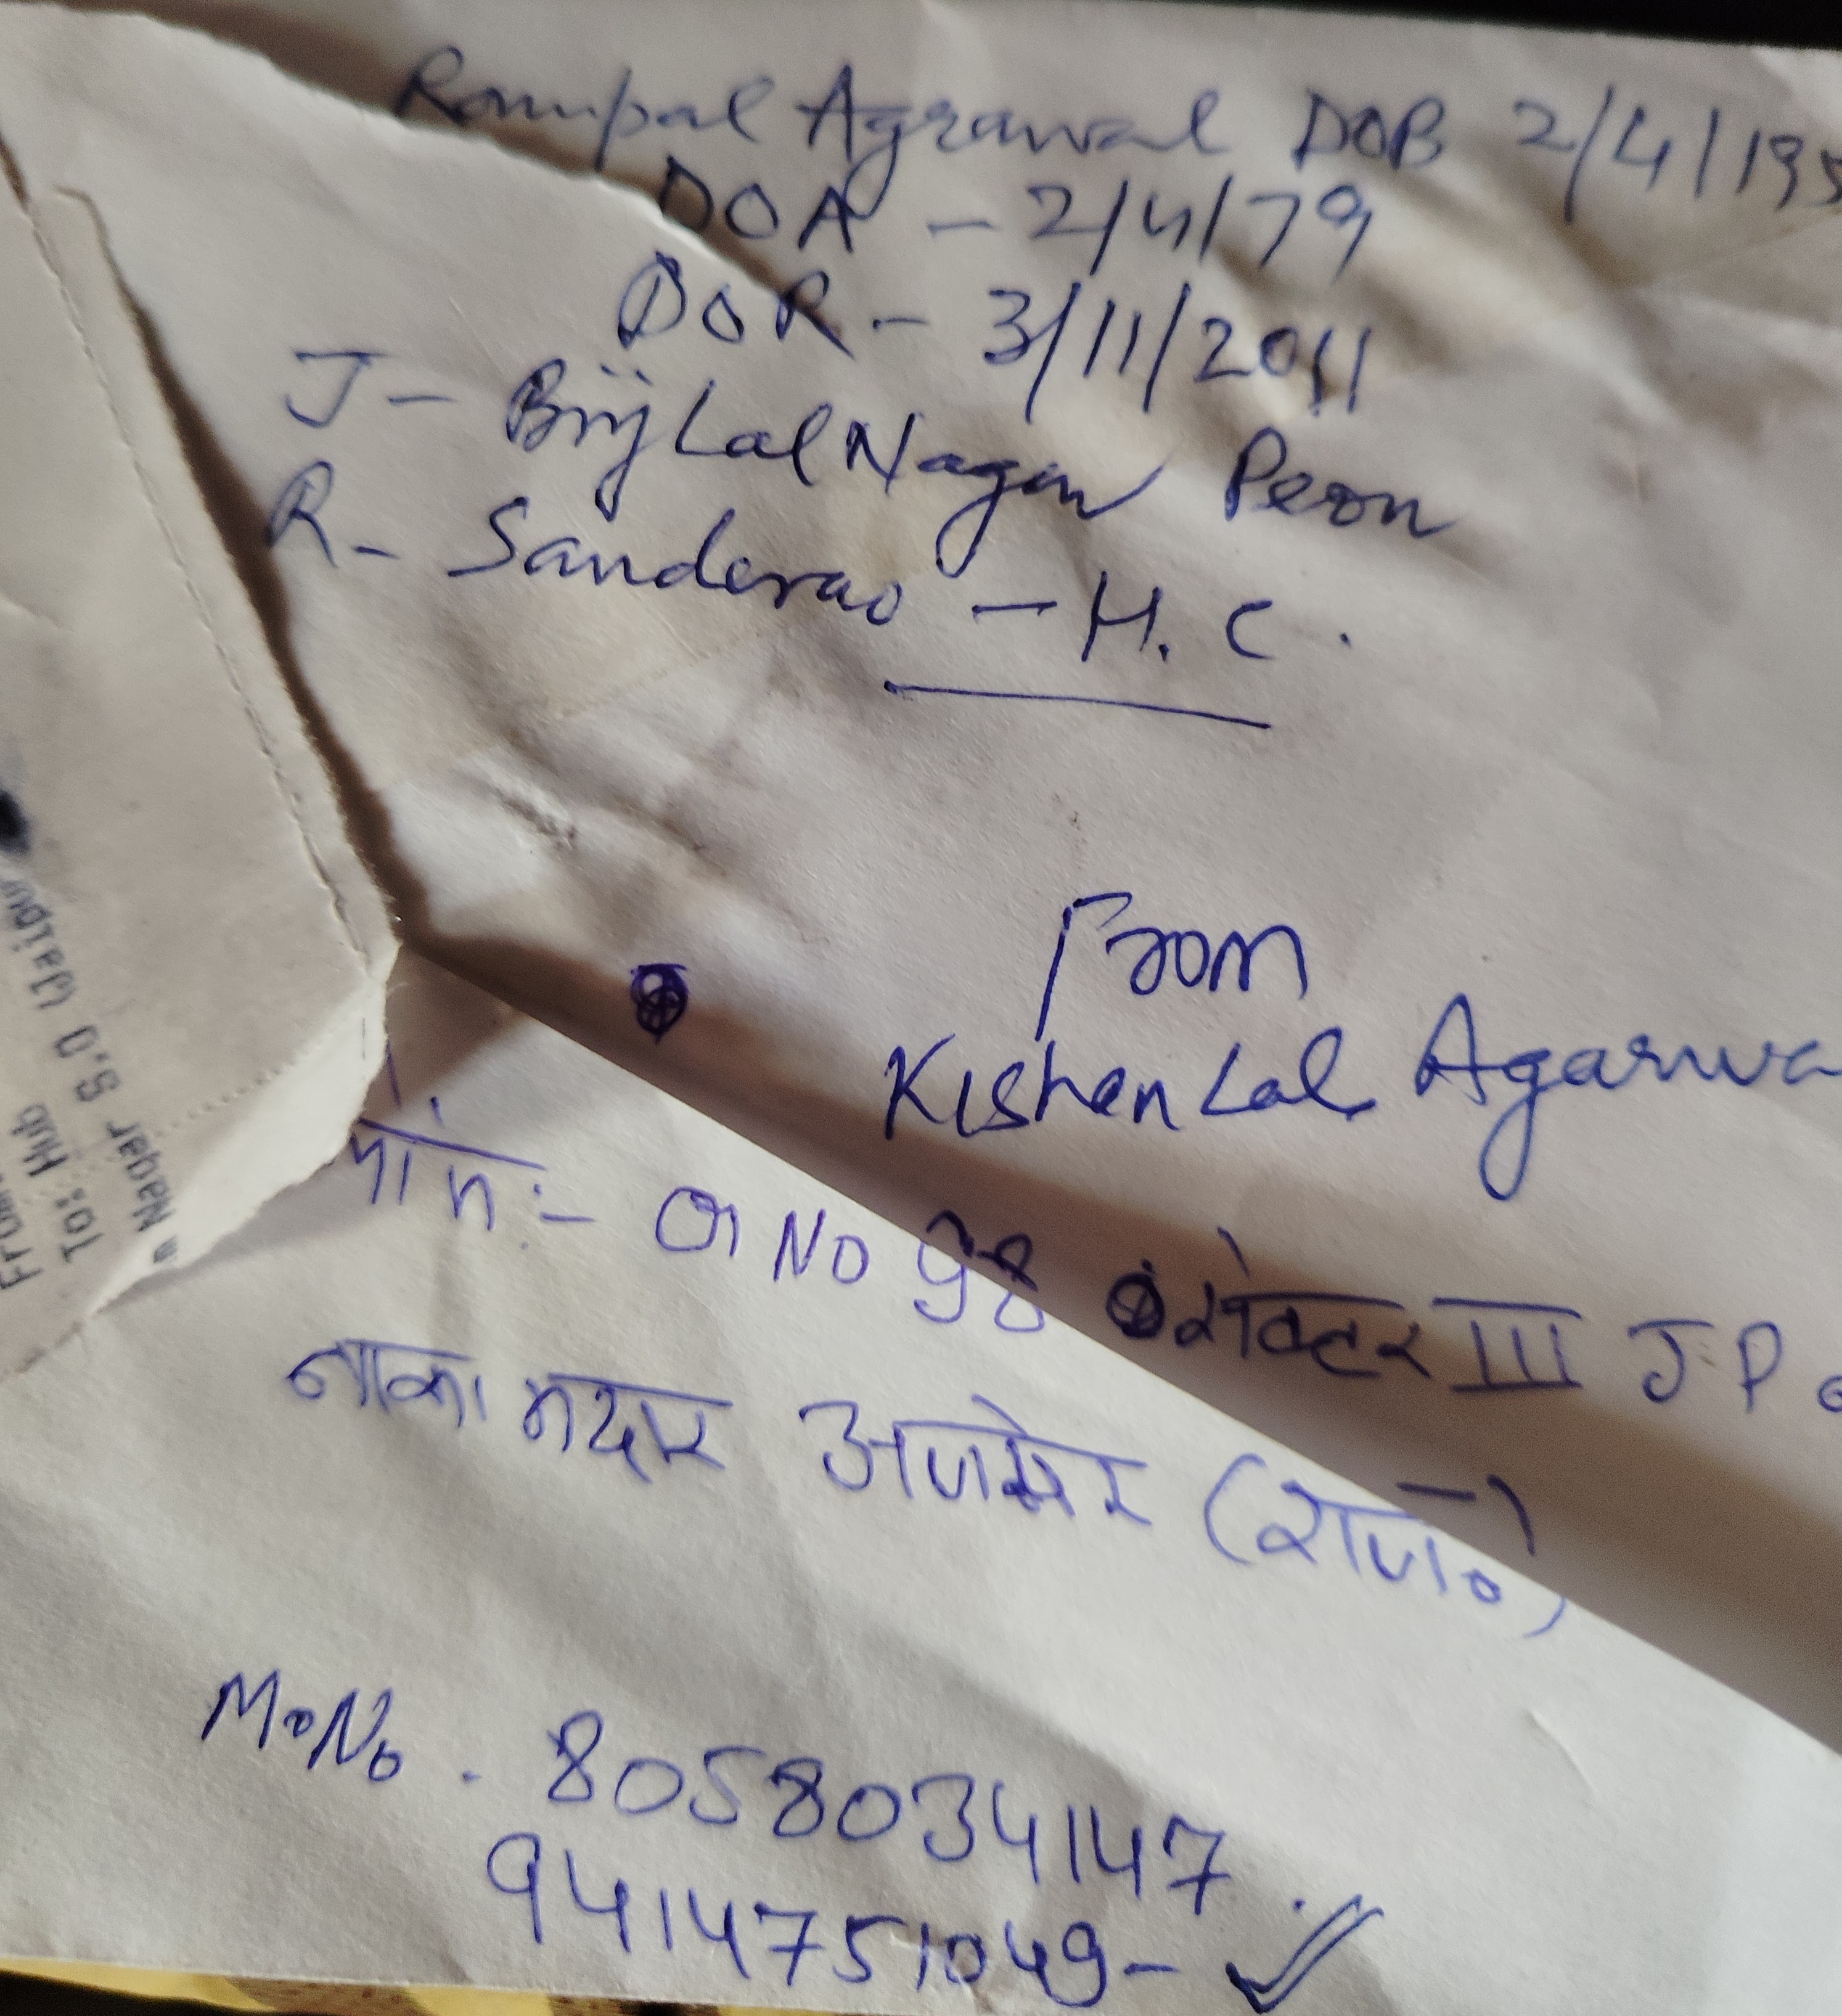 Rampal Agrawal DOB 2/4/195
DOA - 2/4/79
DOR - 3/11/2011
J - Brij Lal Nagar Peon
R - Sanderao - H.C.
From
Kishen Lal Agarwa
No १३४ सेक्टर III J P
नाका मदार अजमेर (राज०)
Mo No. 8058034147
9414751049 -
To: Hub
Nagar S.O